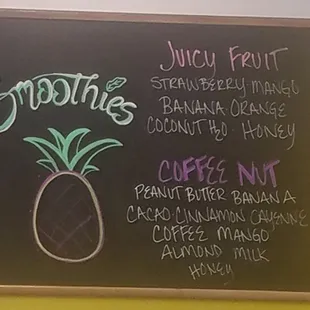 Smoothies
JUICY FRUIT
STRAWBERRY·MANGO
BANANA·ORANGE
COCONUT H2O·HONEY
COFFEE NUT
PEANUT BUTTER BANANA
CACAO·CINNAMON CAYENNE
COFFEE MANGO
ALMOND MILK
HONEY